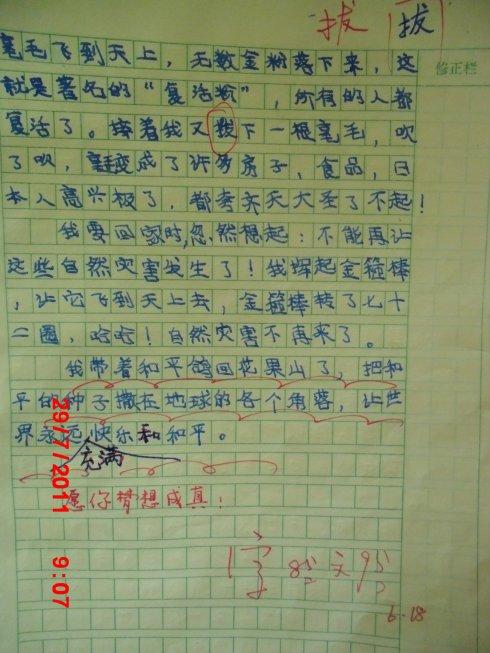 拔 拔
修正栏
毫毛飞到天上，无数金粉落下来，这
就是著名的“复活粉”，所有的人都
复活了。接着我又拨下一根毫毛，吹
了吹，毫毛变成了许多房子，食品，日
本人高兴极了，都夸齐天大圣了不起！
我要回家时，忽然想起：不能再让
这些自然灾害发生了！我挥起金箍棒
，让它飞到天上去，金箍棒转了七十
二圈，哈哈！自然灾害不再来了。
我带着和平鸽回花果山了，把和
平的种子撒在地球的各个角落，让世
界永远快乐和和平。
充满
愿你梦想成真！
字 85 文 95
6.18
29/7/2011 9:07